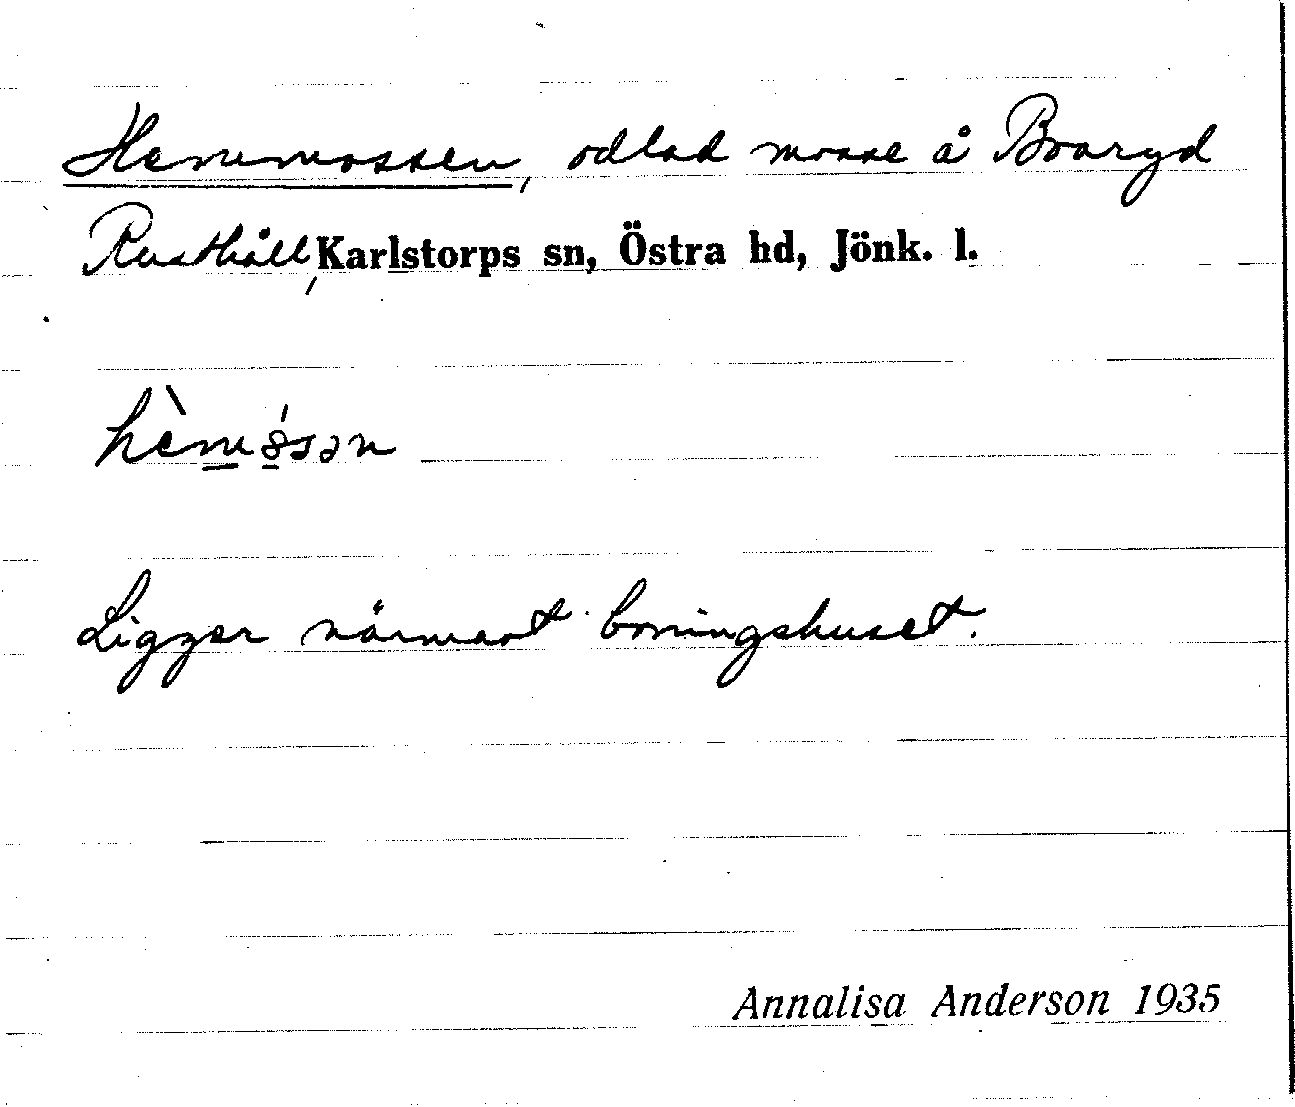 Hemmossen, odlad mosse å Boaryd
Rusthåll, Karlstorps sn, Östra hd, Jönk. l.
hèmósən
Ligger närmast boningshuset.
Annalisa Anderson 1935